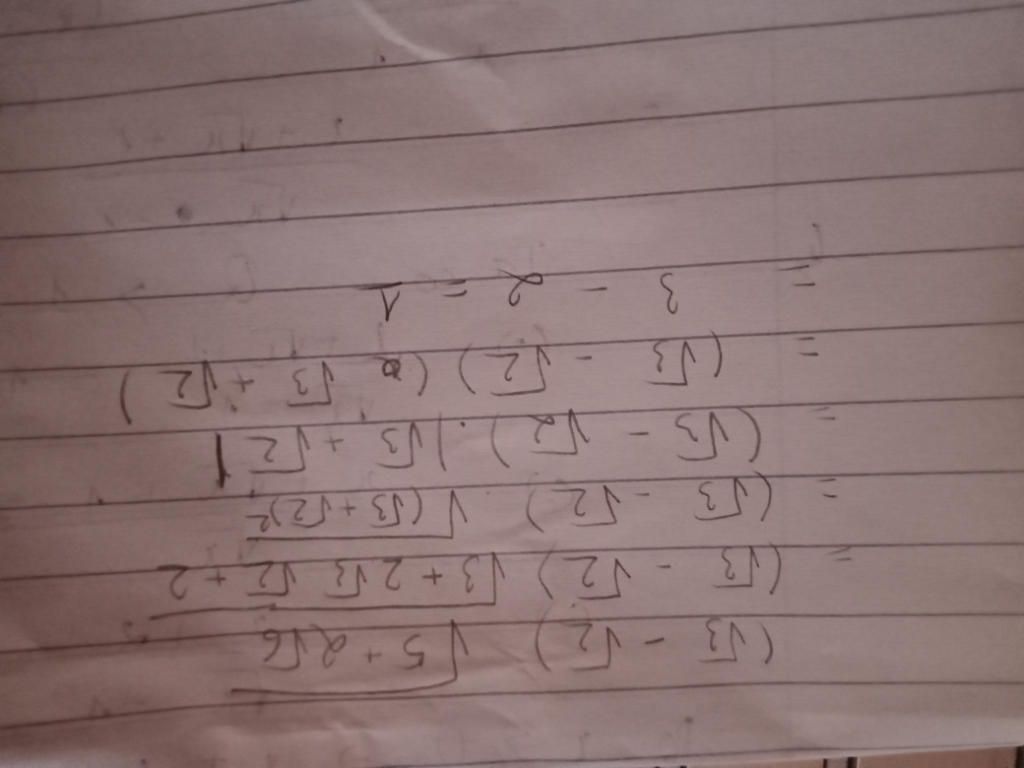 (√3 - √2) √(5 + 2√6)
= (√3 - √2) √(3 + 2√3 √2 + 2)
= (√3 - √2) √((√3 + √2)²)
= (√3 - √2) · |√3 + √2|
= (√3 - √2) (√3 + √2)
= 3 - 2 = 1